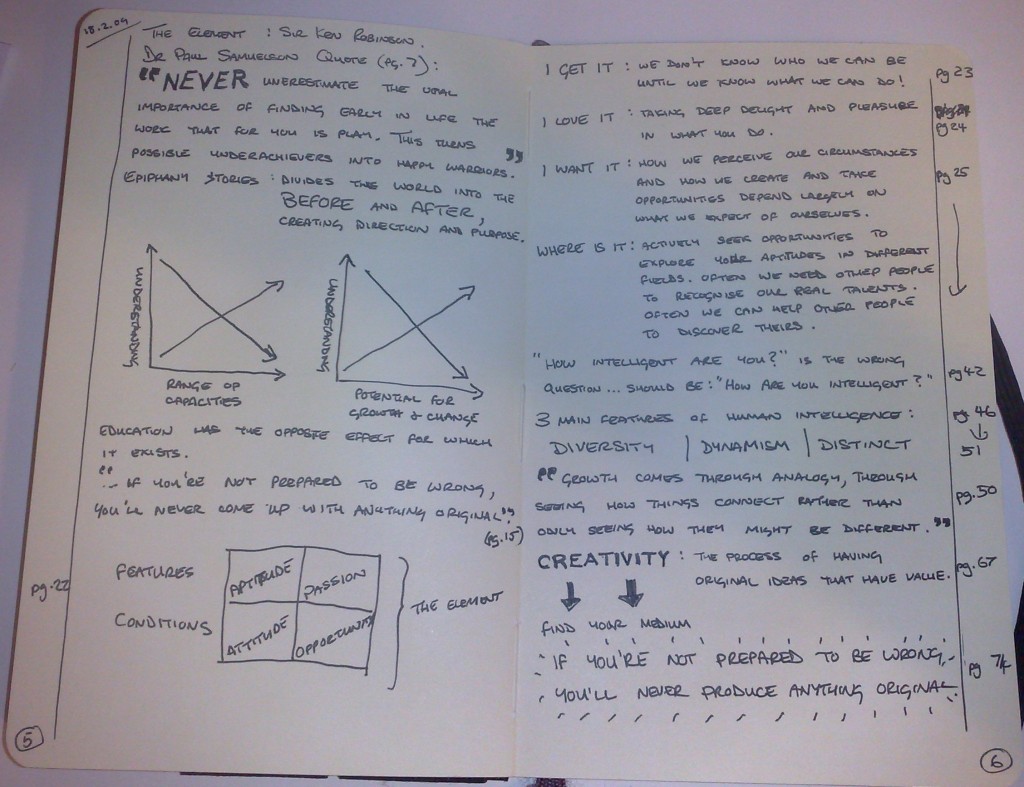 18.2.09
THE ELEMENT : SIR KEN ROBINSON.
DR PAUL SAMUELSON QUOTE (PG. 7) :
"NEVER UNERESTIMATE THE VITAL
IMPORTANCE OF FINDING EARLY IN LIFE THE
WORK THAT FOR YOU IS PLAY. THIS TURNS
POSSIBLE UNDERACHIEVERS INTO HAPPY WARRIORS."
EPIPHANY STORIES : DIVIDES THE WORLD INTO THE
BEFORE AND AFTER,
CREATING DIRECTION AND PURPOSE.
UNDERSTANDING
RANGE OF
CAPACITIES
UNDERSTANDING
POTENTIAL FOR
GROWTH & CHANGE
EDUCATION HAS THE OPPOSITE EFFECT FOR WHICH
IT EXISTS.
"... IF YOU'RE NOT PREPARED TO BE WRONG,
YOU'LL NEVER COME UP WITH ANYTHING ORIGINAL".
(PG.15)
Pg.22
FEATURES
APTITUDE
PASSION
CONDITIONS
ATTITUDE
OPPORTUNITY
THE ELEMENT
5
I GET IT : WE DON'T KNOW WHO WE CAN BE
UNTIL WE KNOW WHAT WE CAN DO!
Pg 23
I LOVE IT : TAKING DEEP DELIGHT AND PLEASURE
IN WHAT YOU DO.
Pg 24
I WANT IT : HOW WE PERCEIVE OUR CIRCUMSTANCES
AND HOW WE CREATE AND TAKE
OPPORTUNITIES DEPEND LARGELY ON
WHAT WE EXPECT OF OURSELVES.
Pg 25
WHERE IS IT : ACTIVELY SEEK OPPORTUNITIES TO
EXPLORE YOUR APTITUDES IN DIFFERENT
FIELDS. OFTEN WE NEED OTHER PEOPLE
TO RECOGNISE OUR REAL TALENTS.
OFTEN WE CAN HELP OTHER PEOPLE
TO DISCOVER THEIRS.
"HOW INTELLIGENT ARE YOU?" IS THE WRONG
QUESTION... SHOULD BE : "HOW ARE YOU INTELLIGENT?"
Pg 42
3 MAIN FEATURES OF HUMAN INTELLIGENCE :
Pg 46
DIVERSITY | DYNAMISM | DISTINCT
51
"GROWTH COMES THROUGH ANALOGY, THROUGH
SEEING HOW THINGS CONNECT RATHER THAN
ONLY SEEING HOW THEY MIGHT BE DIFFERENT."
Pg.50
CREATIVITY : THE PROCESS OF HAVING
ORIGINAL IDEAS THAT HAVE VALUE.
Pg.67
FIND YOUR MEDIUM
IF YOU'RE NOT PREPARED TO BE WRONG,
YOU'LL NEVER PRODUCE ANYTHING ORIGINAL.
Pg 74
6